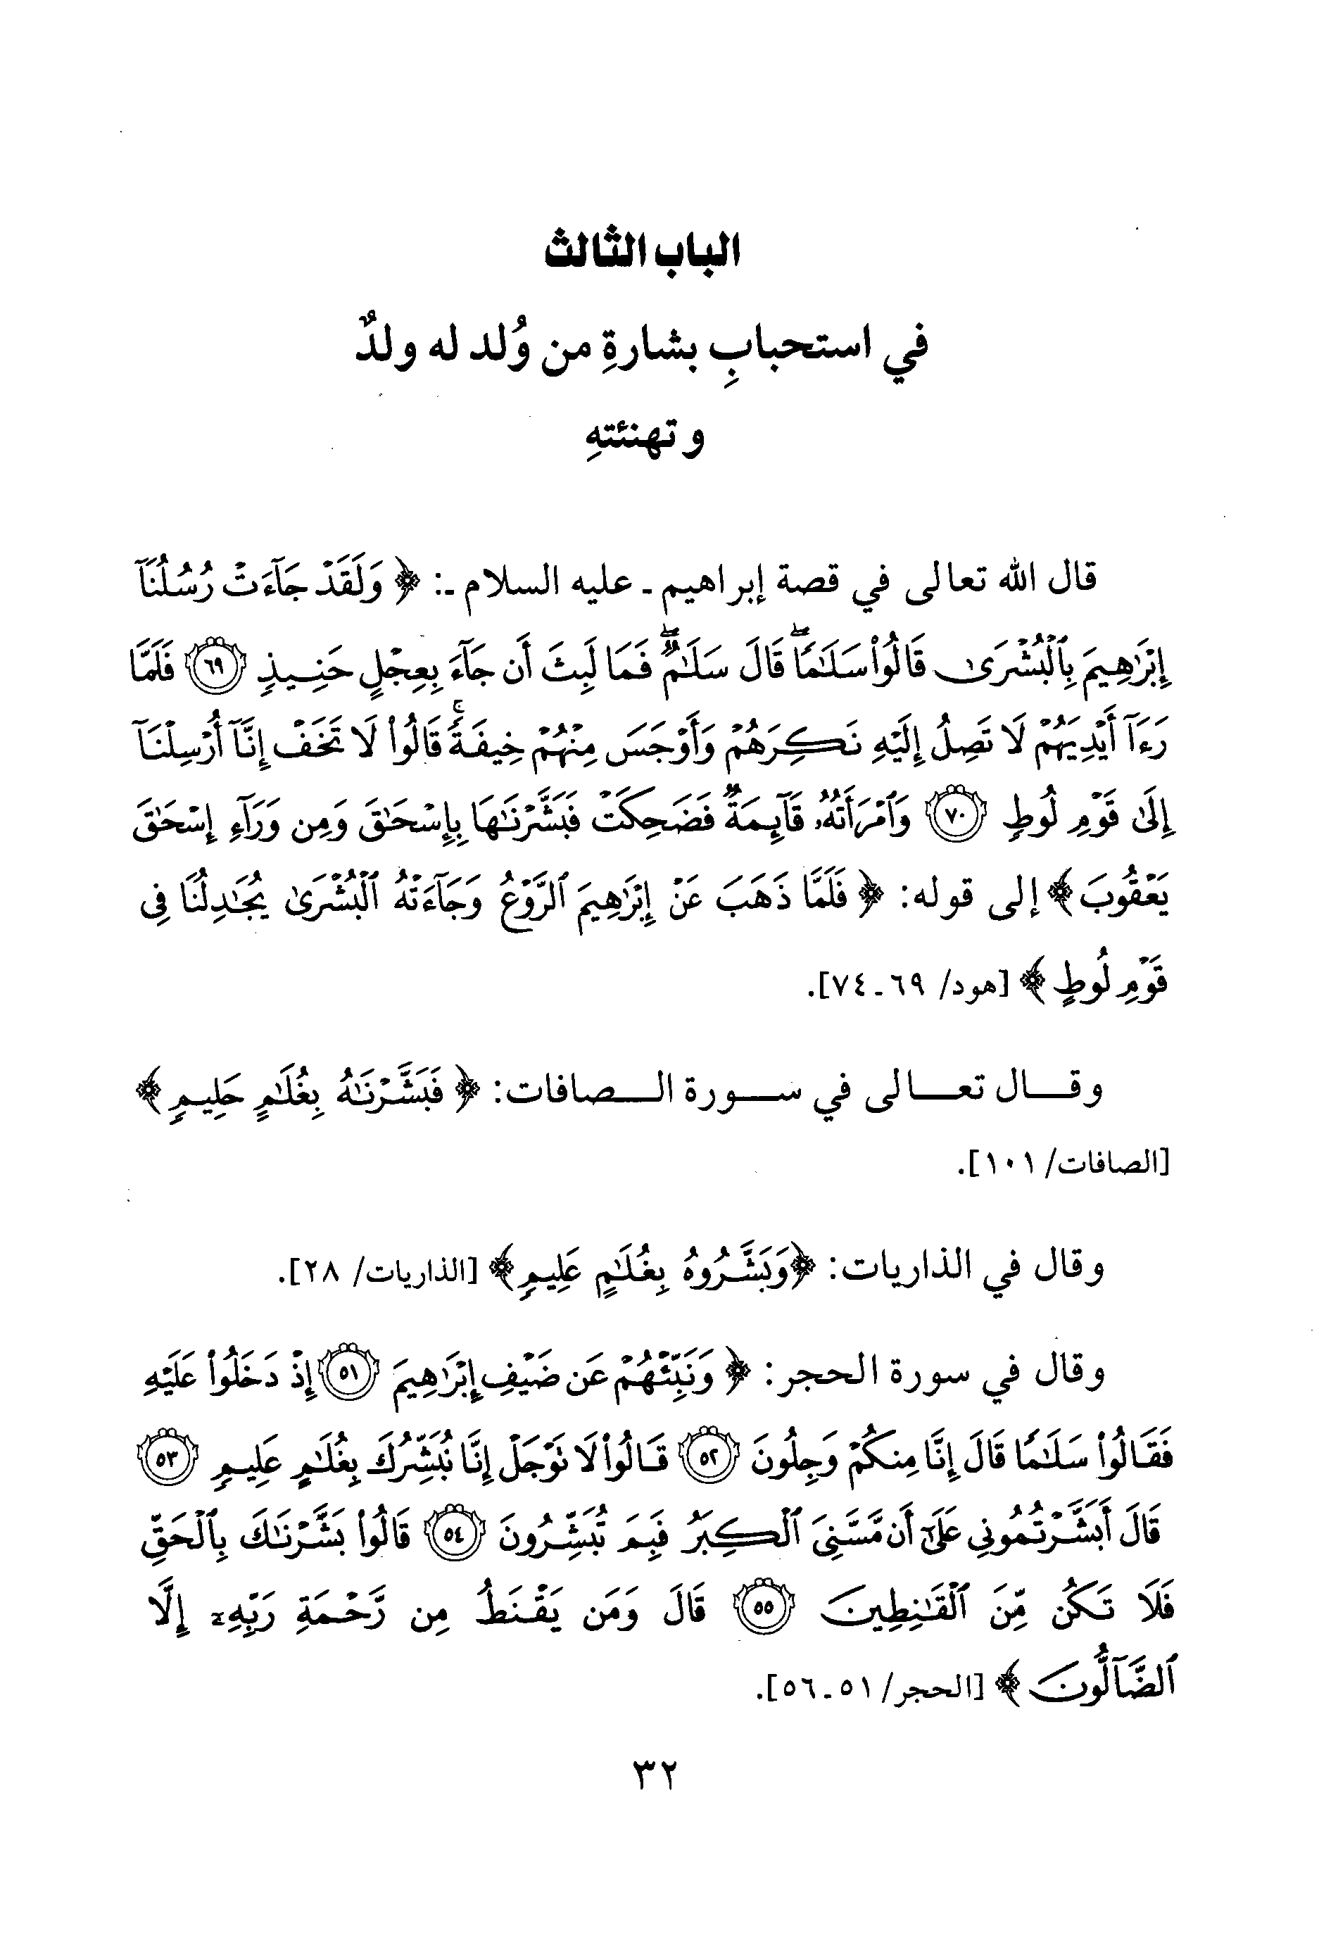 الباب الثالث
في استحبابِ بشارةِ من وُلد له ولدٌ
وتهنئتهِ
قال الله تعالى في قصة إبراهيم ـ عليه السلام ـ: ﴿ وَلَقَدْ جَآءَتْ رُسُلُنَآ
إِبْرَٰهِيمَ بِٱلْبُشْرَىٰ قَالُوا۟ سَلَـٰمًا ۖ قَالَ سَلَـٰمٌ ۖ فَمَا لَبِثَ أَن جَآءَ بِعِجْلٍ حَنِيذٍ ٦٩ فَلَمَّا
رَءَآ أَيْدِيَهُمْ لَا تَصِلُ إِلَيْهِ نَكِرَهُمْ وَأَوْجَسَ مِنْهُمْ خِيفَةً ۚ قَالُوا۟ لَا تَخَفْ إِنَّآ أُرْسِلْنَآ
إِلَىٰ قَوْمِ لُوطٍ ٧٠ وَٱمْرَأَتُهُۥ قَآئِمَةٌ فَضَحِكَتْ فَبَشَّرْنَـٰهَا بِإِسْحَـٰقَ وَمِن وَرَآءِ إِسْحَـٰقَ
يَعْقُوبَ ﴾ إلى قوله: ﴿ فَلَمَّا ذَهَبَ عَنْ إِبْرَٰهِيمَ ٱلرَّوْعُ وَجَآءَتْهُ ٱلْبُشْرَىٰ يُجَـٰدِلُنَا فِى
قَوْمِ لُوطٍ ﴾ [هود/ ٦٩ ـ ٧٤].
وقـــال تعـــالى في ســـورة الـــصافات: ﴿ فَبَشَّرْنَـٰهُ بِغُلَـٰمٍ حَلِيمٍ ﴾
[الصافات/ ١٠١].
وقال في الذاريات: ﴿وَبَشَّرُوهُ بِغُلَـٰمٍ عَلِيمٍ ﴾ [الذاريات/ ٢٨].
وقال في سورة الحجر: ﴿ وَنَبِّئْهُمْ عَن ضَيْفِ إِبْرَٰهِيمَ ٥١ إِذْ دَخَلُوا۟ عَلَيْهِ
فَقَالُوا۟ سَلَـٰمًا قَالَ إِنَّا مِنكُمْ وَجِلُونَ ٥٢ قَالُوا۟ لَا تَوْجَلْ إِنَّا نُبَشِّرُكَ بِغُلَـٰمٍ عَلِيمٍ ٥٣
قَالَ أَبَشَّرْتُمُونِى عَلَىٰٓ أَن مَّسَّنِىَ ٱلْكِبَرُ فَبِمَ تُبَشِّرُونَ ٥٤ قَالُوا۟ بَشَّرْنَـٰكَ بِٱلْحَقِّ
فَلَا تَكُن مِّنَ ٱلْقَـٰنِطِينَ ٥٥ قَالَ وَمَن يَقْنَطُ مِن رَّحْمَةِ رَبِّهِۦٓ إِلَّا
ٱلضَّآلُّونَ ﴾ [الحجر/ ٥١ ـ ٥٦].
٣٢